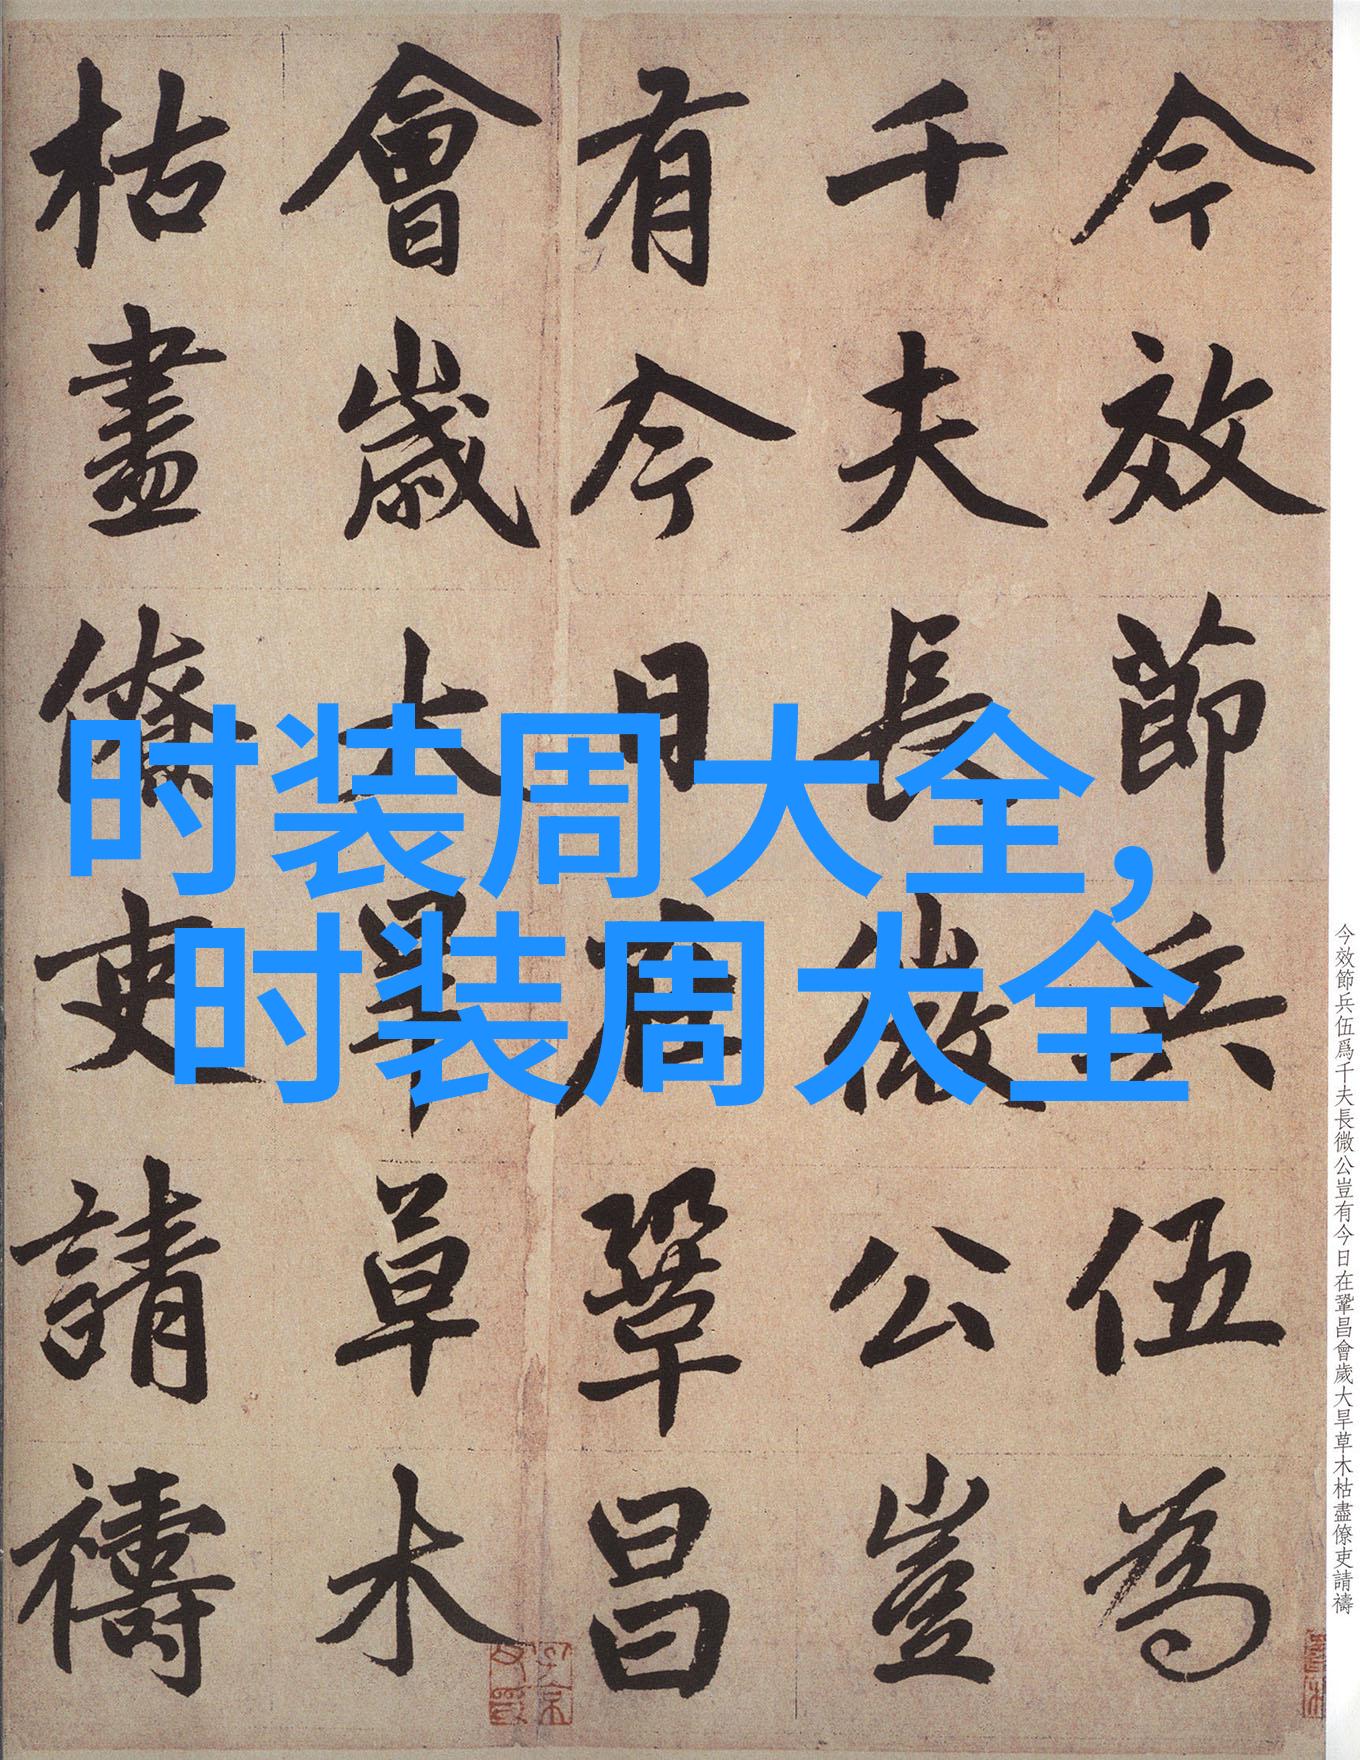 今效節兵伍為
千夫長微公豈
有今日在鞏昌
會歲大旱草木
枯盡僚吏請禱
时装周大全，
时装周大全
今效節兵伍爲千夫長微公豈有今日在鞏昌會歲大旱草木枯盡僚吏請禱